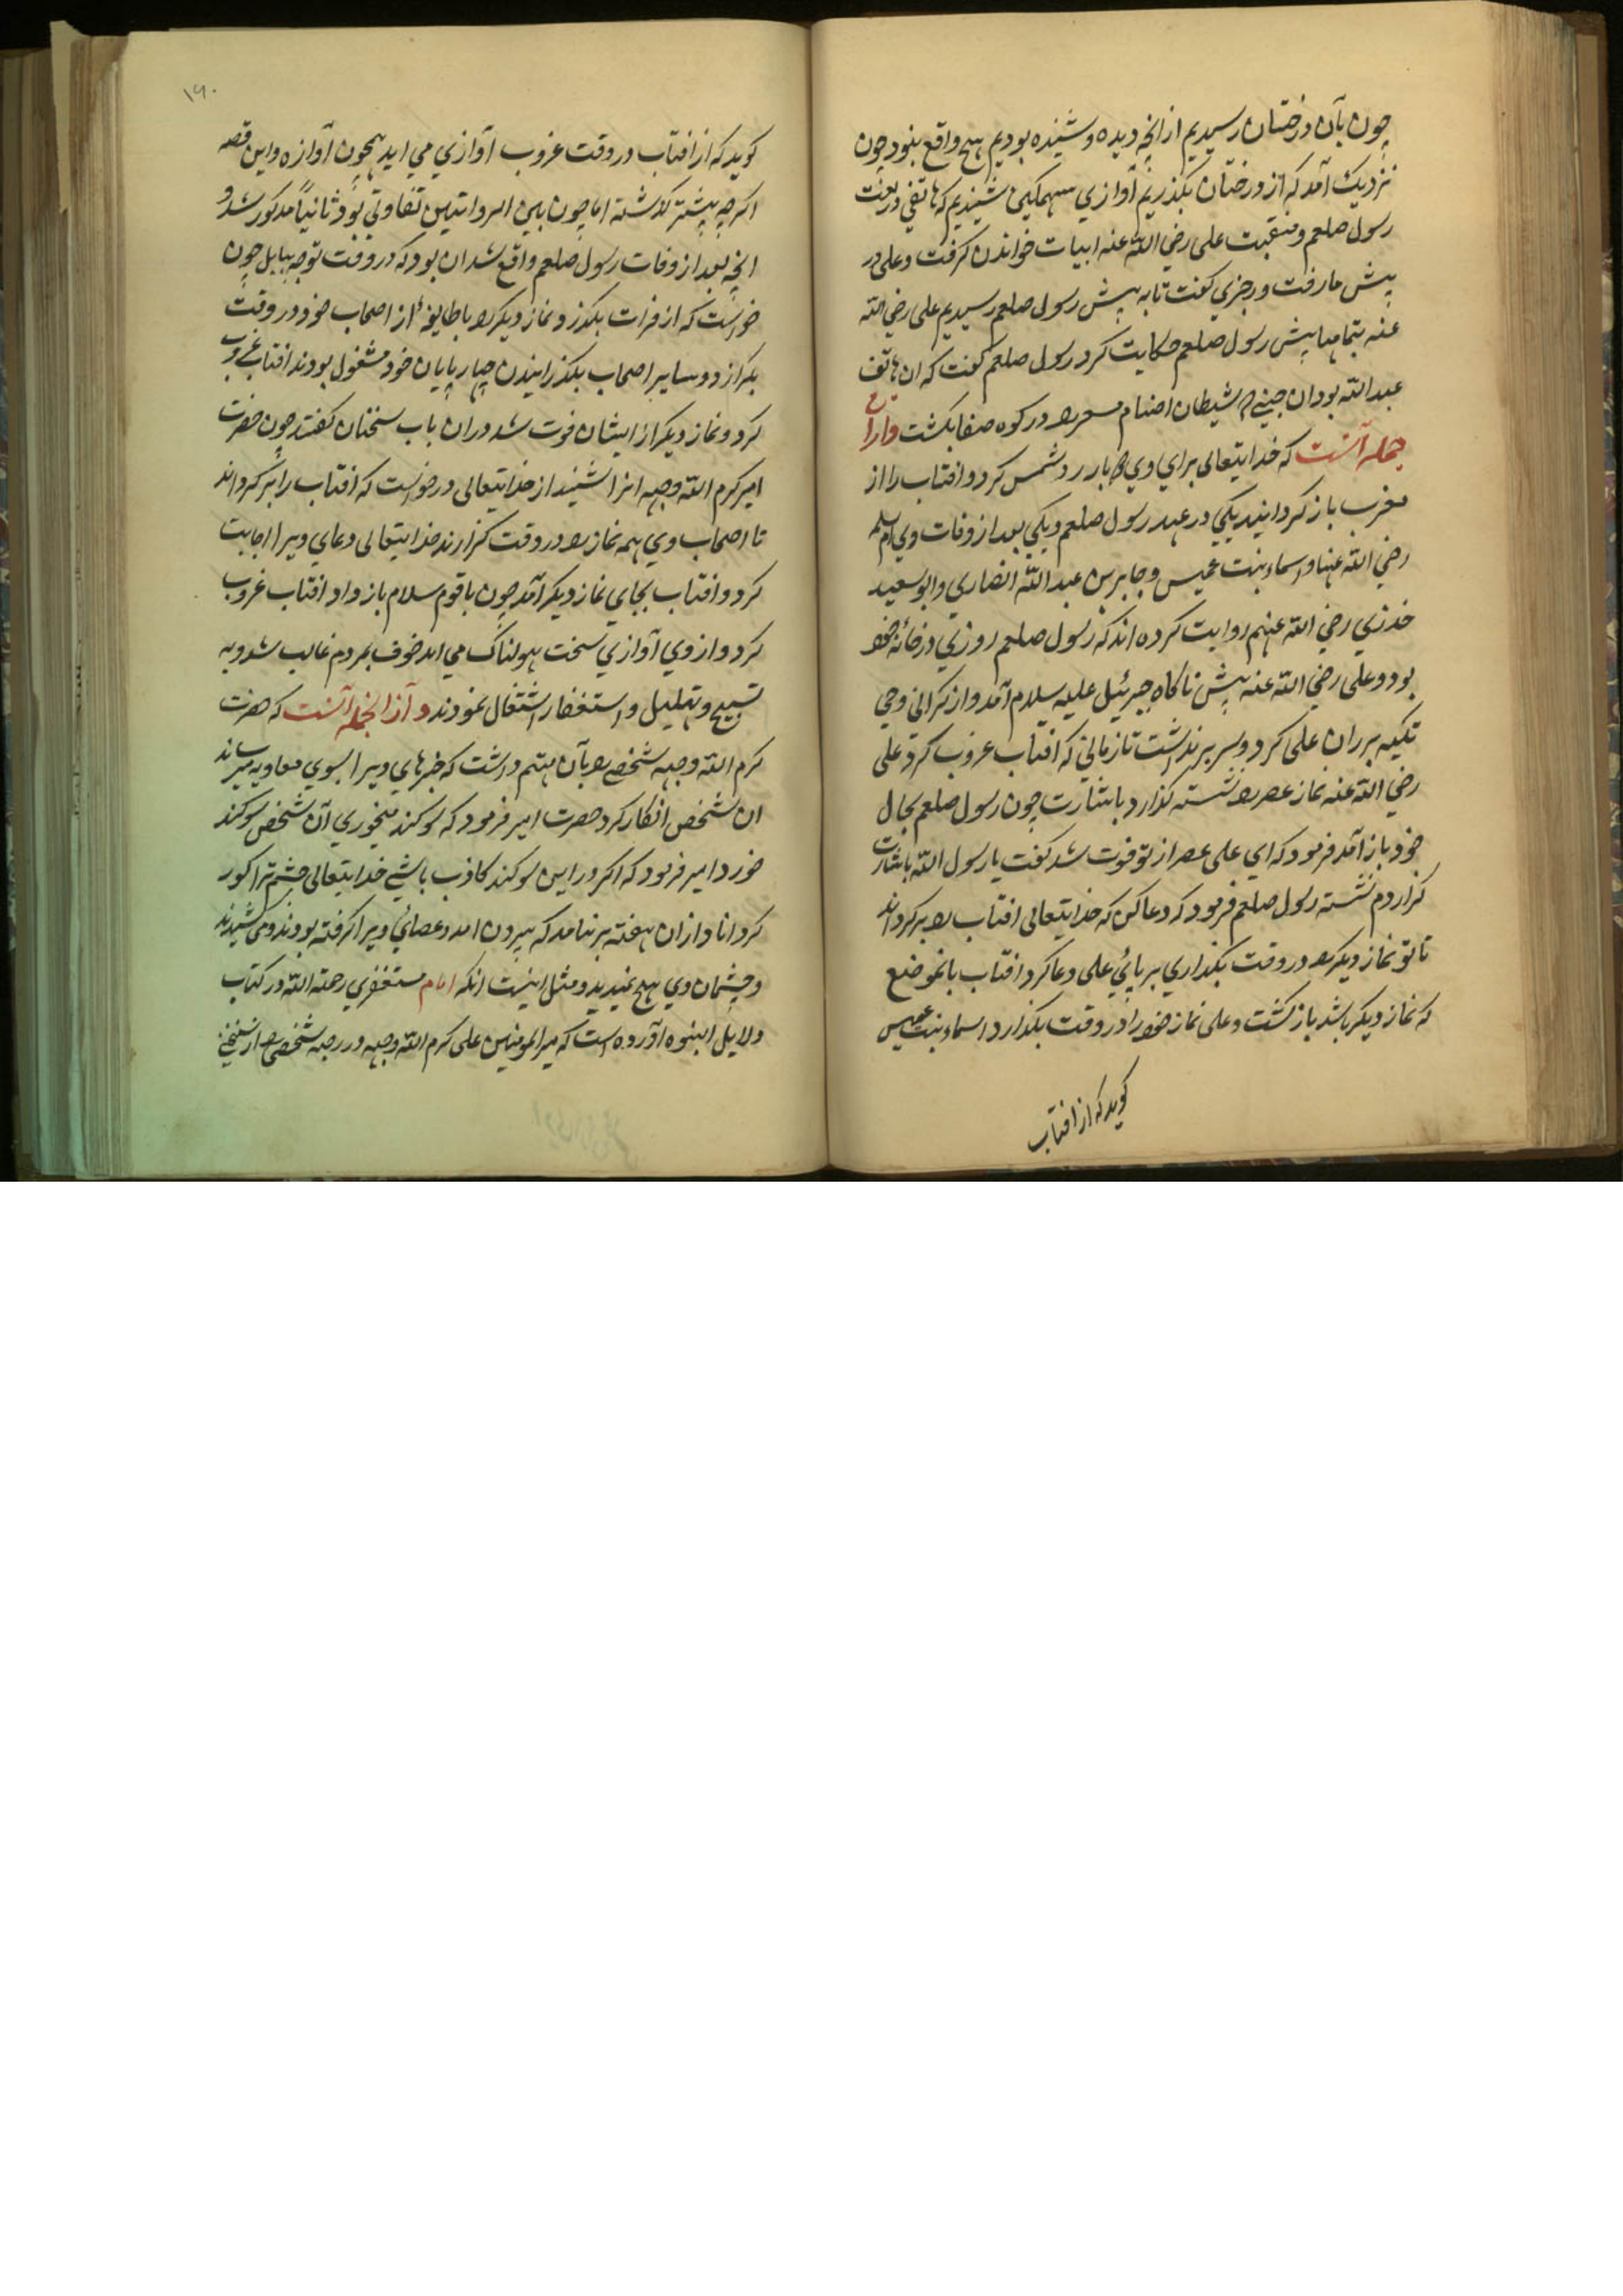 چون بآن درختان رسیدیم از انچه دیده و شنیده بودیم هیچ واقع نبود چون
نزدیک آمد که از درختان بگذریم آوازی سهمگین شنیدیم که هاتفی در نعت
رسول صلعم و منقبت علی رضی الله عنه ابیات خواندن کرفت و علی در
پیش ما رفت و رجزی کفت تا به پیش رسول صلعم رسیدیم علی رضی الله
عنه بتمامها پیش رسول صلعم حکایت کرد رسول صلعم کفت که ان هاتف
عبد الله بود ان جنی که شیطان اصنام مسعر را در کوه صفا بکشت و از ان
جمله آنست که خدایتعالی برای وی دو بار رد شمس کرد و افتاب را از
مغرب باز کردانید یکی در عهد رسول صلعم و یکی بعد از وفات وی ام سلمه
رضی الله عنها و اسماء بنت عمیس و جابر بن عبد الله انصاری و ابو سعید
خدری رضی الله عنهم روایت کرده اند که رسول صلعم روزی در خانه خود
بود و علی رضی الله عنه پیش ناکاه جبرئیل علیه سلام آمد و از کرانی وحی
تکیه بر ران علی کرد و سر بر نداشت تا زمانی که افتاب غروب کرد علی
رضی الله عنه نماز عصر را نشسته کذارد باشارت چون رسول صلعم بحال
خود باز آمد فرمود که ای علی عصر از تو فوت شد کفت یا رسول الله باشارت
کزاردم نشسته رسول صلعم فرمود که دعا کن که خدایتعالی افتاب را بر کرداند
تا تو نماز دیکر را در وقت بکذاری بر پائی علی دعا کرد افتاب بانموضع
که نماز دیکر باشد باز کشت و علی نماز خود را در وقت بکذارد اسماء بنت عمیس
کوید که از افتاب
۱۹۰
کوید که از افتاب در وقت غروب آوازی می اید همچون آوازه و این قصه
اکر چه پیشتر کذشته اما چون بین الروایتین تفاوتی بود ثانیاً مذکور شد و
انچه بعد از وفات رسول صلعم واقع شد ان بود که در وقت توجه ببابل چون
خواست که از فرات بکذرد نماز دیکر را با طایفه از اصحاب خود در وقت
بکزارد و سایر اصحاب بکذرانیدن چهار پایان خود مشغول بودند افتاب غروب
کرد و نماز دیکر از ایشان فوت شد دران باب سخنان کفتند چون حضرت
امیر کرم الله وجهه انرا شنید از خدایتعالی درخواست که افتاب را بر کرداند
تا اصحاب وی همه نماز را در وقت کزارند خدایتعالی دعای ویرا اجابت
کرد و افتاب بجای نماز دیکر آمد چون با قوم سلام باز داد افتاب غروب
کرد و از وی آوازی سخت هولناک می امد خوف بمردم غالب شد و به
تسبیح و تهلیل و استغفار اشتغال نمودند و از انجمله آنست که حضرت
کرم الله وجهه شخصی را بآن متهم داشت که خبرهای ویرا بسوی معاویه میرساند
ان شخص انکار کرد حضرت امیر فرمود که سوکند میخوری آن شخص سوکند
خورد امیر فرمود که اکر در این سوکند کاذب باشی خدایتعالی چشم ترا کور
کرداناد از ان هفته بر نیامد که بیرون امد و عصائی ویرا کرفته بودند و می کشیدند
و چشمان وی هیچ نمیدید و مثل اینست انکه امام مستغفری رحمة الله در کتاب
دلایل النبوه آورده است که میر المومنین علی کرم الله وجهه در رحبه شخصی را از سخنی